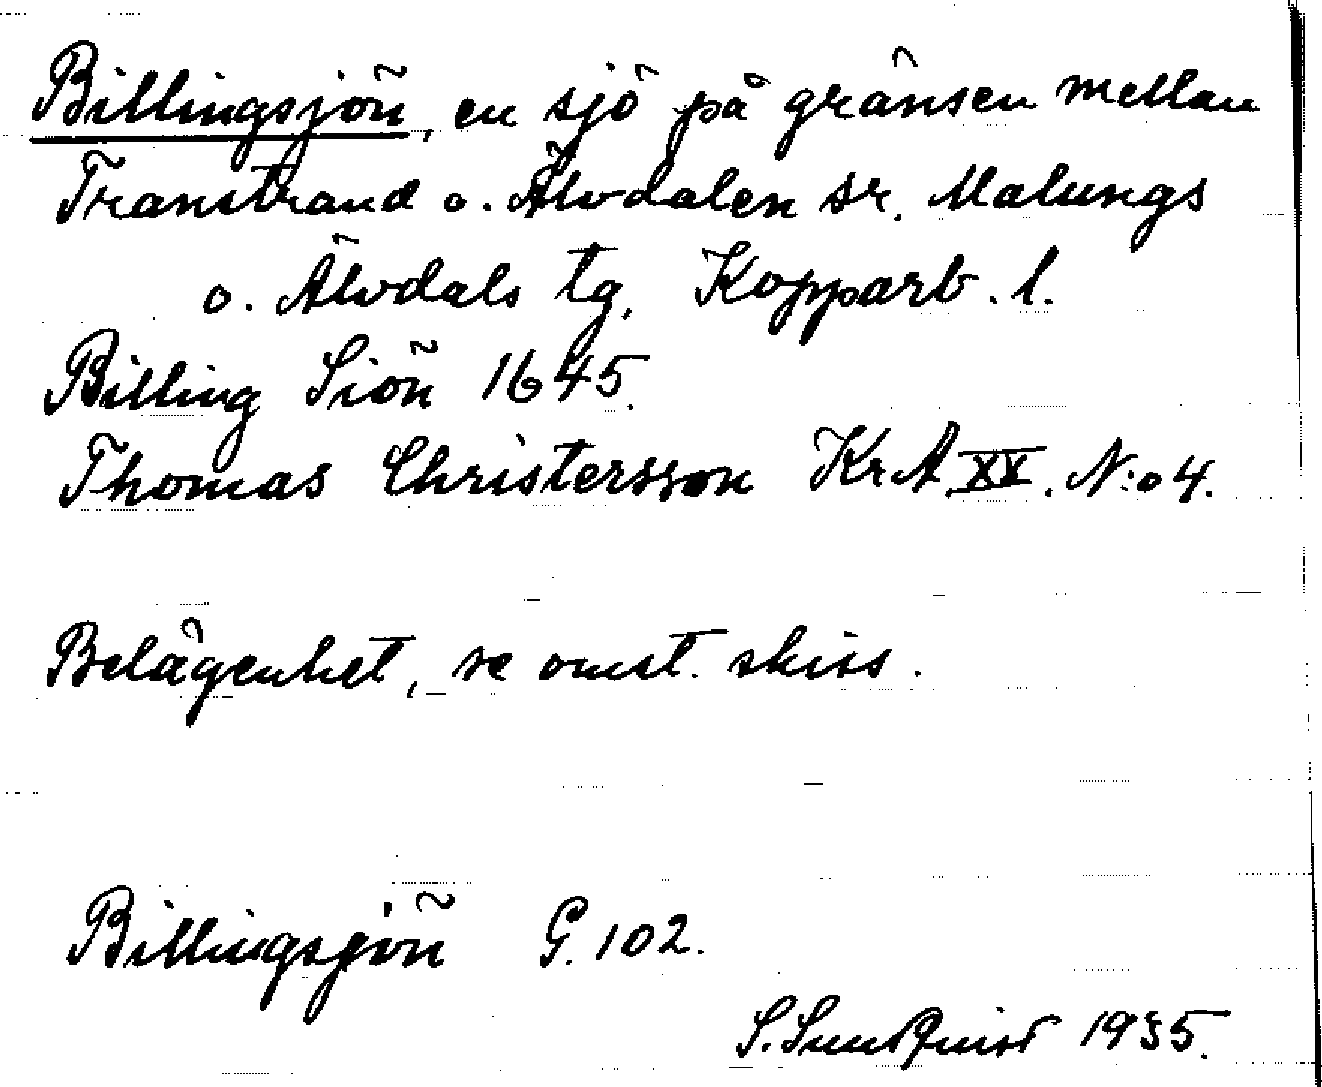 Billingsjön, en sjö på gränsen mellan
Transtrand o. Älvdalen sr. Malungs
o. Älvdals tg, Kopparb. l.
Billing Siön 1645.
Thomas Christersson KrA.XX. N:o 4.
Belägenhet, se omst. skiss.
Billingsjön G. 102.
S. Sundquist 1935.